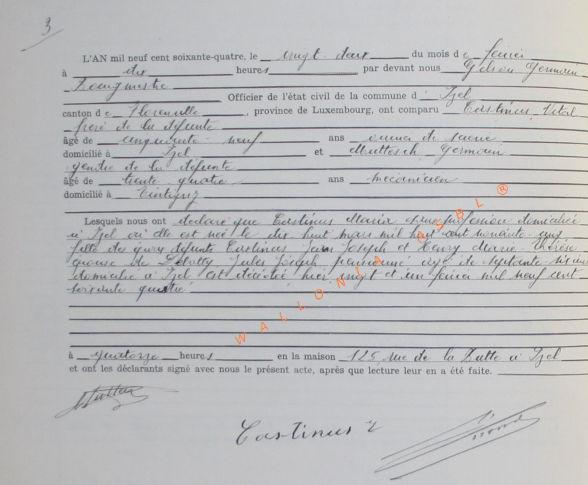 3
L'AN mil neuf cent soixante-quatre, le vingt-deux du mois de février
à dix heures par devant nous Gilson Germain
Bourgmestre
Officier de l'état civil de la commune d'Izel
canton de Florenville, province de Luxembourg, ont comparu Castinus, Vital
frère de la défunte
âgé de cinquante-neuf ans
domicilié à Izel et Germain
gendre de la défunte
âgé de trente quatre ans mécanicien
domicilié à Tintigny
Lesquels nous ont déclaré que Castinus Maria sans profession domiciliée
à Izel où elle est née le dix huit mars mil huit cent nonante
fille de défunts Castinus Jean Joseph et Henry Marie
épouse de Jules Joseph pensionné âgé de septante
domicilié à Izel est décédée hier vingt et un février mil neuf cent
soixante quatre
à quatorze heures en la maison 125 rue de la à Izel
et ont les déclarants signé avec nous le présent acte, après que lecture leur en a été faite.
Castinus V
WALLONIA ASBL ®